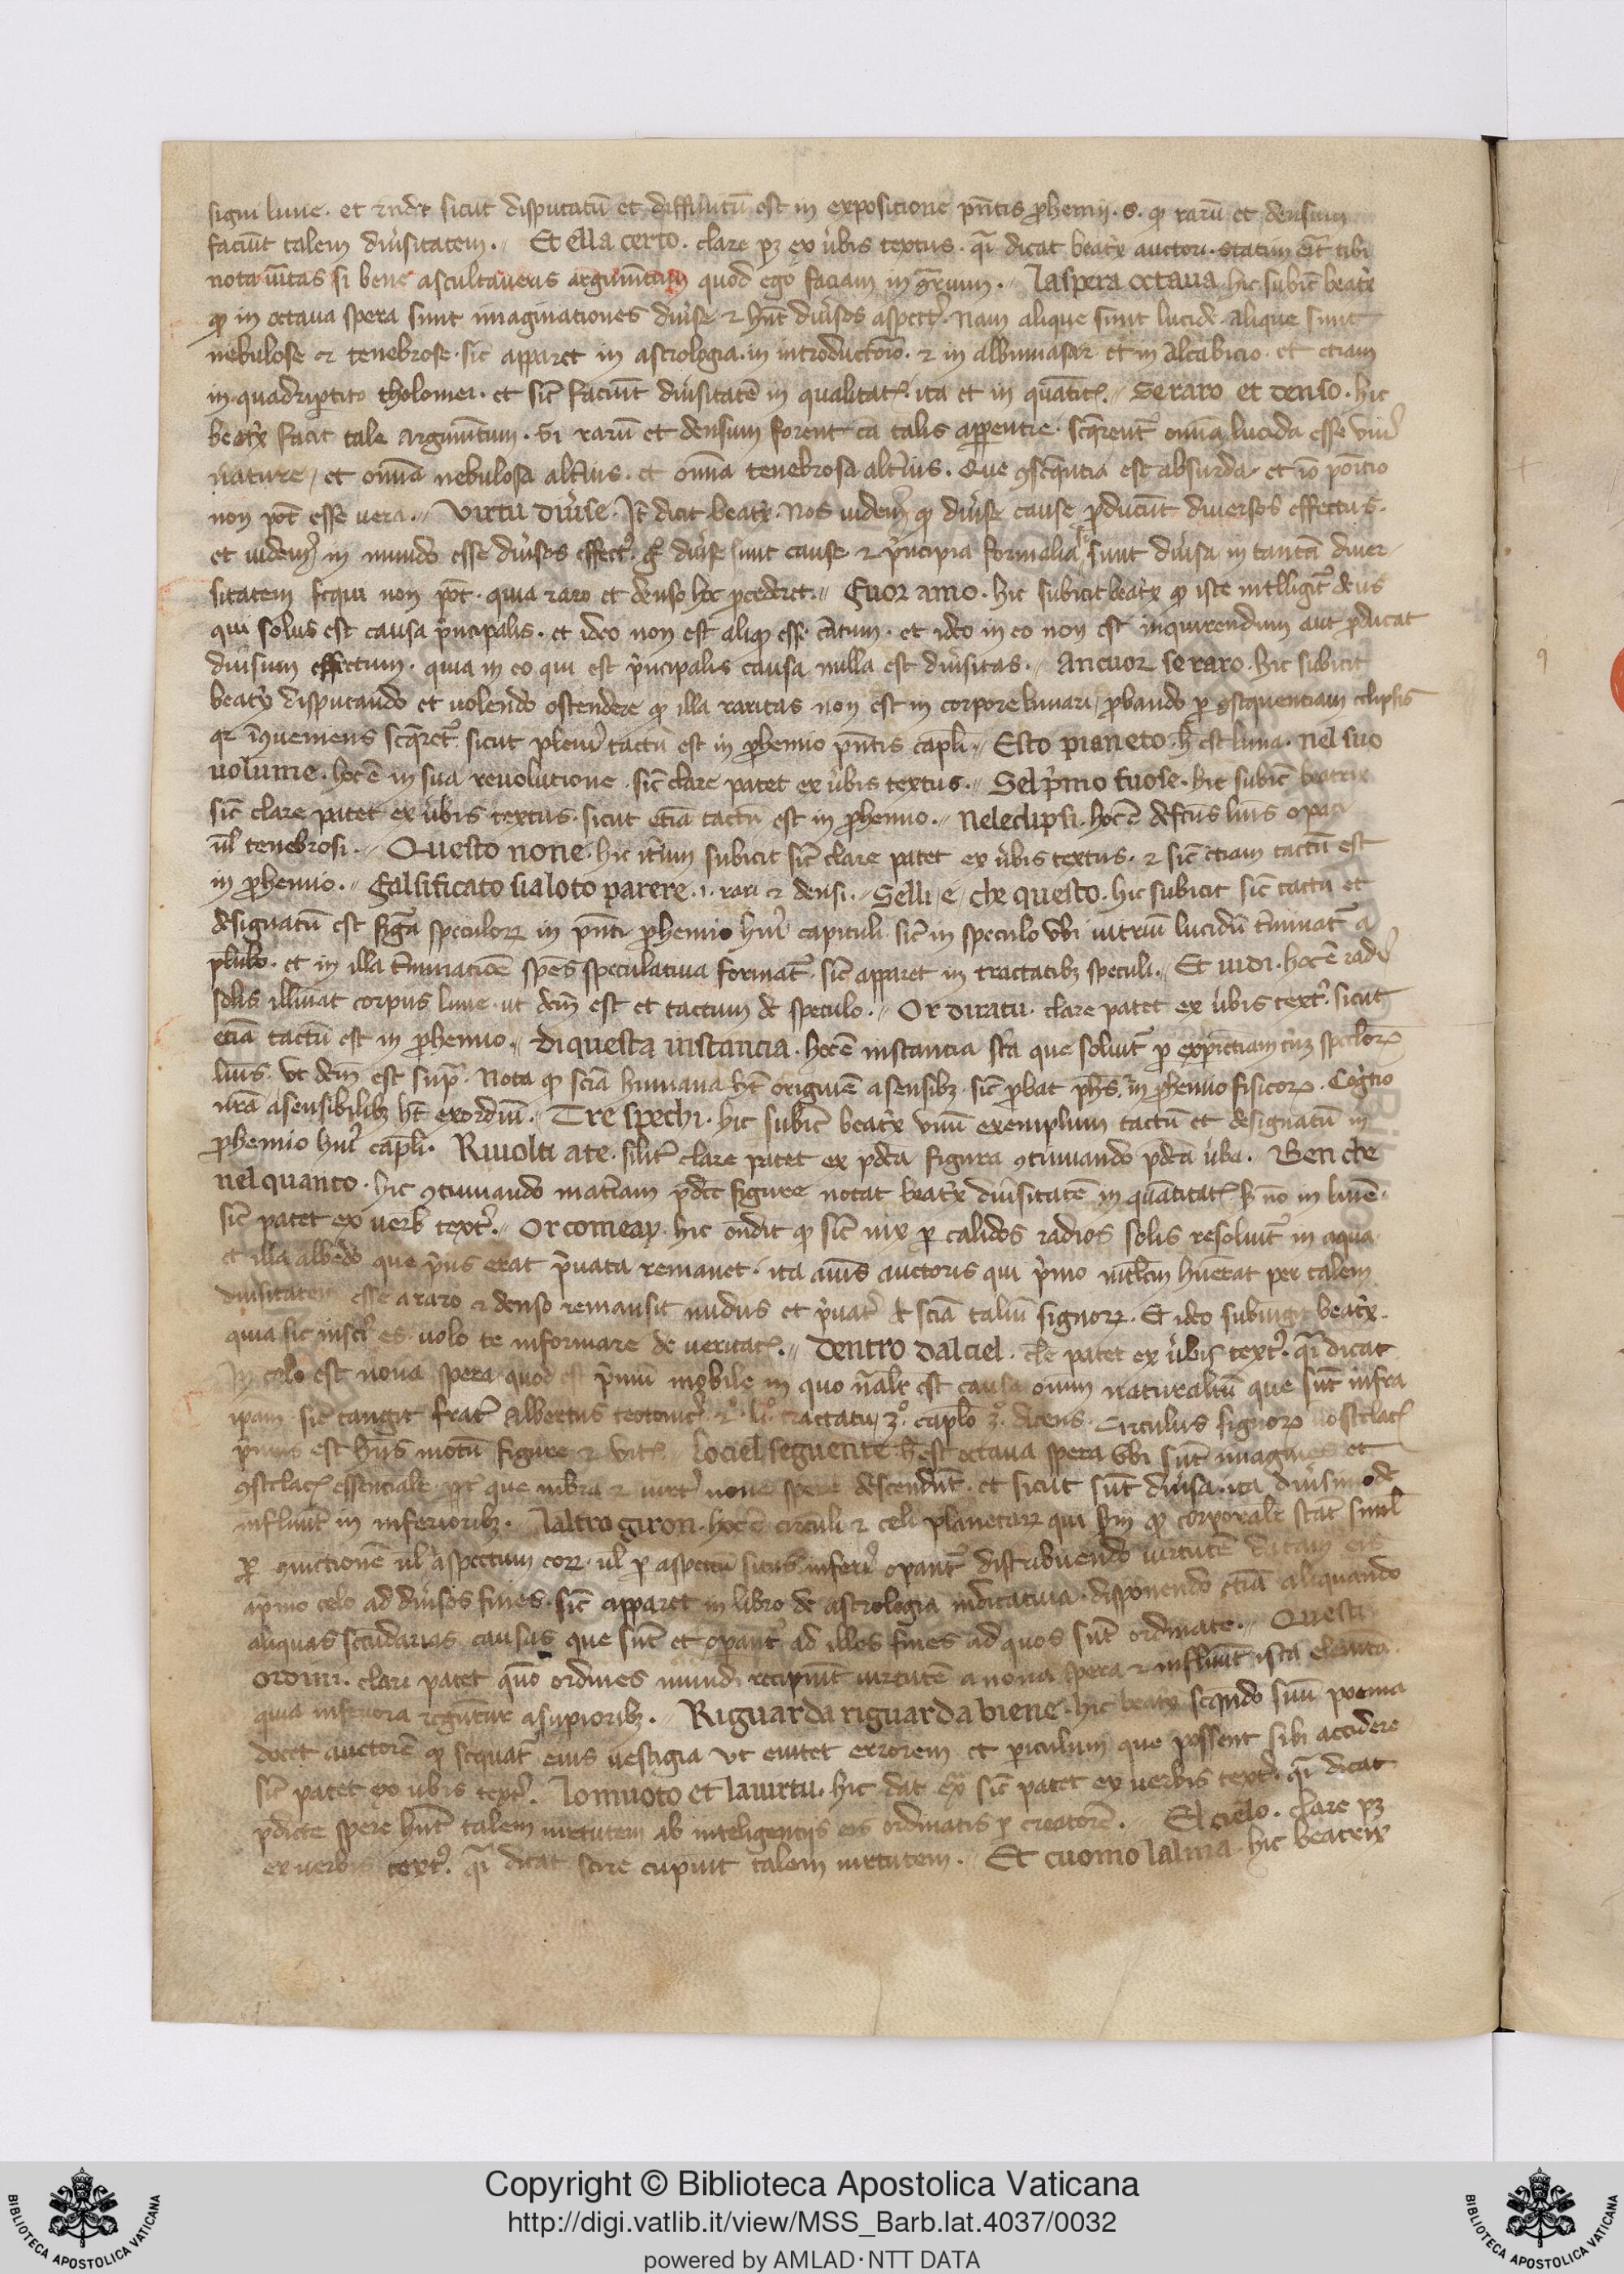 signi lune. et rndet sicut disputatū et diffinitū est in expositione pn̄tis prohemij. s. quod rarū et densum
faciūt talem diu̓sitatem. Et ella certo. clare pꝫ ex u̓bis textus. q̄i dicat beatx̓ auctori. statim eīt tibi
nota ūitas si bene ascultaueris argumētum quod ego faciam in. La spera octaua hic subic̄ beatx̓
quod in octaua spera sunt imaginationes diu̓se et hn̄t diu̓sos aspectꝰ. Nam alique sunt lucide. alique sunt
nebulose et tenebrose. sic̄ apparet in astrologia. in introductorio. et in albumasar et in Alcabicio. et etiam
in quadripertito tholomei. et sic̄ faciūt diu̓sitatē in qualitate. ita et in quātite. Se raro et denso. hic
beatx̓ facit tale argumētum. Si rarū et densum forent cā talis apparentie. sequerent̄ omnia lucida esse vniꝰ
nature, et omnia nebulosa altiꝰ. et omnia tenebrosa alteriꝰ. Que ꝯsequentia est absurda. et iō positio
non pōt esse uera. Virtu diu̓se. It̄ dicit beatx̓. Nos uidemꝰ quod diu̓se cause producūt diuersos effectus.
et uidemꝰ in mundo esse diu̓sos effectꝰ. diu̓se sunt cause et pi̓ncipia formalia sunt diu̓sa in tantā diuer-
sitatem sequi non pōt. quia raro et denso hoc procederet. Fuor amo. hic subicit beatx̓ quod iste intelligit̄ deus
qui solus est causa pi̓ncipalis. et ideo non est aliquod esse cātum. et ideo in eo non est inquirendum aut producat
diu̓sum effectum. quia in eo qui est pi̓ncipalis causa nulla est diu̓sitas. Ancuor se raro. hic subicit
beatx̓ disputando et uolendo ostendere quod illa raritas non est in corpore lunari, probando per ꝯsequentiam eclipsis
sequeret̄. sicut pleniꝰ tactū est in prohemio pn̄tis capli. Esto pianeto. h̄ est luna. nel suo
uolume. hoc ē in sua reuolucione. sic̄ clare patet ex u̓bis textus. Sel pi̓mo fuose. hic subic̄ beatrix
sic̄ clare patet ex u̓bis textus. sicut etiā tactū est in prohemio. Nel eclipsi. hoc ē defectus lunis opaci
ūl tenebrosi. Questo none. hic itm̄ subicit sic̄ clare patet ex u̓bis textus. et sic̄ etiam tactū est
in prohemio. Falsificato sia loto parere. i. rari et densi. Selli e che questo. hic subicit sic̄ tactū et
designatū est speculorꝝ in pn̄ti prohemio huiꝰ capituli. sic̄ in speculo vbi uitrum lucidū t̄minat̄ a
plubo. et in illa t̄minatiōe spēs speculatiua format̄. sic̄ apparet in tractatibꝫ speculi. Et uidi. hoc ē radiꝰ
solis illuīat corpus lune. ut dc̄m est et tactum de speculo. Or diratu. clare patet ex u̓bis textꝰ. sicut
etiā tactū est in prohemio. Di questa instancia. hoc ē instancia sc̄a que soluit̄ per expientiam speculorꝝ
lūis. ut dc̄m est supᵃ. Nota quod sciā humana ht̄ originē a sensibꝫ. sic̄ probat phs̄ in prohemio fisicorꝝ. Cognitio
nrā a sensibilibꝫ ht̄ exordiū. Tre spechi. hic subic̄ beatx̓ vnū exemplum tactū et designatū in
prohemio huiꝰ capli. Riuolti a te. silit̄ clare patet ex pdc̄a figura ꝯtinuando pdc̄ā u̓ba. Ben che
nel quanto. hic ꝯtinuando mat̄iam pdc̄e figure notat beatx̓ diu̓sitatē in quātitate. s̄ nō in lumē.
sic̄ patet ex verb textꝰ. Or come ay. hic on̄dit quod sic̄ nix per calidos radios solis resoluit̄ in aqua.
et illa albedo que pi̓us erat pi̓uata remanet. ita aīus auctoris qui pi̓mo intlc̄m hūerat per talem
diu̓sitatem esse a raro et denso remansit nudus et pi̓uatꝰ de sciā taliū signorꝝ. Et ideo subiūgit beatx̓.
quia sic es uolo te informare de ueritate. Dentro dal ciel. clē patet ex u̓bis textꝰ. q̄i dicat
In celo est nona spera quod est pi̓mū mobile in quo nālr est causa oīum naturaliū que sūt infra
ipam. sic̄ tangit frat̄ Albertus teotonicꝰ. 2º. liº. tractatu 3º. caplo 3º. dicens. Circulus signorꝝ
pi̓mus est hn̄s motū figure et vite. Lo ciel seguente. h̄ est octaua spera vbi sūt imagines et
essentiale. que mēbra et uirtꝰ none spere descendūt. et sicut sūt diu̓sa. ita diu̓simode
influūt in inferioribꝫ. Laltro giron. hoc ē circuli et celi planetarꝝ qui quod corporale stāt simᵉl
ꝯiunctionē ul aspectum eorꝝ. ul per aspectū situs inferiꝰ opant̄ distribuendo uirtutē datam eis
a pi̓mo celo ad diu̓sos fines. sic̄ apparet in libro de astrologia indicatiua. disponendo etiā aliquando
aliquas scūdarias causas que sūt et opant̄ ad illos fines ad quos sūt ordinate. Questi
ordini. clari patet quō ordines mundi recipiūt uirtutē a nona spera et influūt ista elemēta.
quia inferiora regūtur a supioribꝫ. Riguarda riguarda biene. hic beatx̓ sequēdo suū poema
docet auctorē quod sequat̄ eius uestigia ut euitet errorem et periculum que possent sibi accidere
sic̄ patet ex u̓bis textꝰ. Lo muoto et la uirtu. hic dat ex̄ sic̄ patet ex uerbis textꝰ. q̄i dicat
pdicte spere hn̄t talem uirtutem ab inteligentijs eis ordinatis per creatorē. El cielo. clare pꝫ
ex uerbis textꝰ. q̄i dicat scire cupiuit talem uirtutem. Et cuomo lalma. hic beatrix
9
Copyright © Biblioteca Apostolica Vaticana
http://digi.vatlib.it/view/MSS_Barb.lat.4037/0032
powered by AMLAD·NTT DATA
BIBLIOTECA APOSTOLICA VATICANA
BIBLIOTECA APOSTOLICA VATICANA